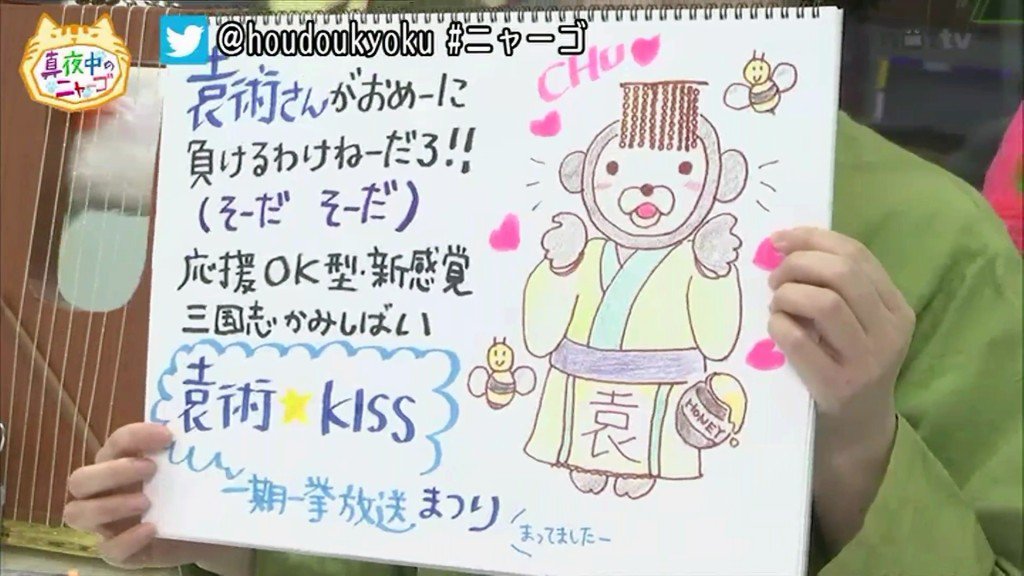 @houdoukyoku #ニャーゴ
真夜中の
ニャーゴ
tv
袁術さんがおめーに
負けるわけねーだろ!!
(そーだ そーだ)
応援OK型・新感覚
三国志かみしばい
袁術★KISS
一期一挙放送まつり
まってましたー
CHU
袁
HONEY